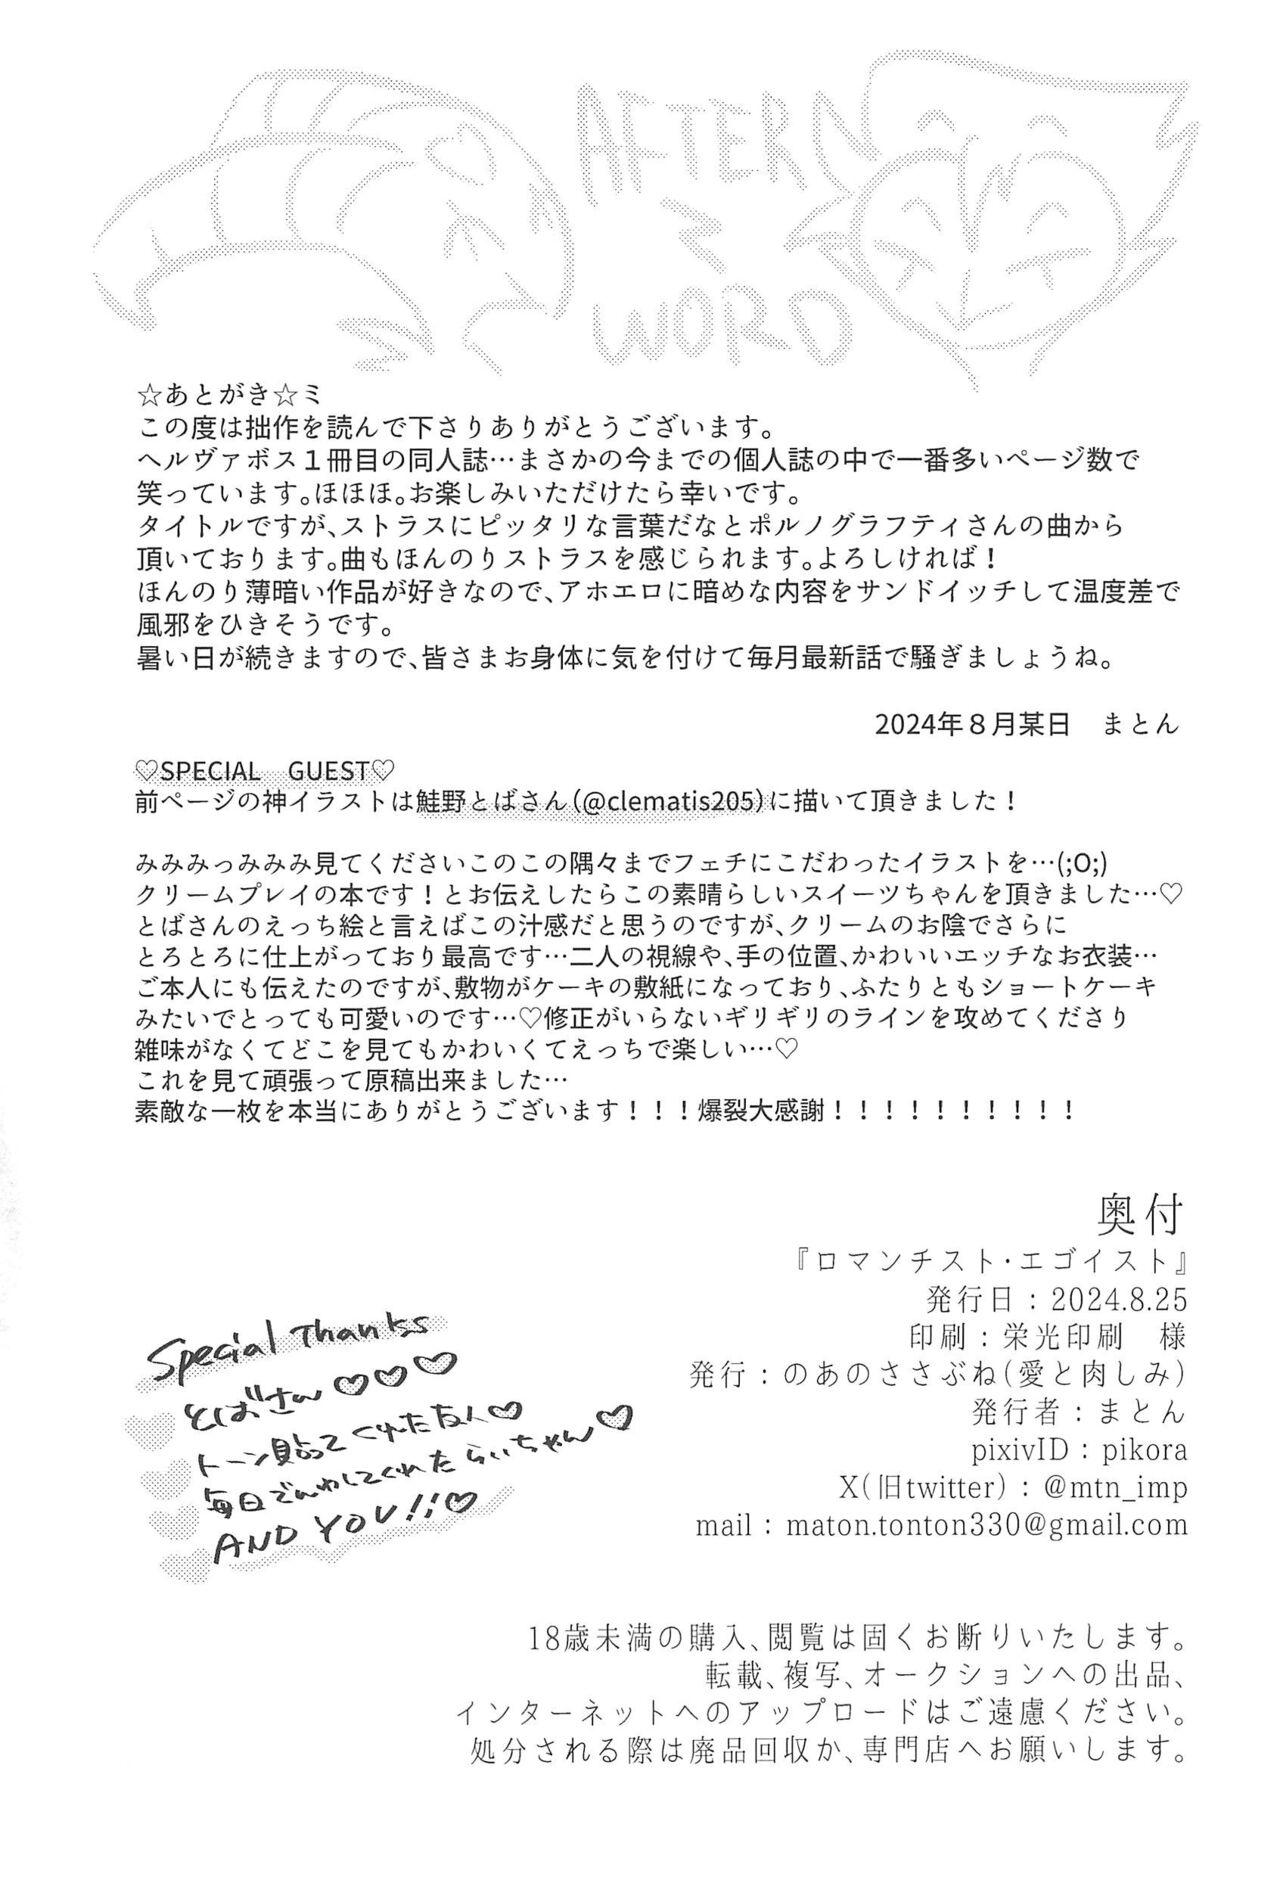 AFTER
WORD
☆あとがき☆ミ
この度は拙作を読んで下さりありがとうございます。
ヘルヴァボス１冊目の同人誌…まさかの今までの個人誌の中で一番多いページ数で
笑っています。ほほほ。お楽しみいただけたら幸いです。
タイトルですが、ストラスにピッタリな言葉だなとポルノグラフティさんの曲から
頂いております。曲もほんのりストラスを感じられます。よろしければ！
ほんのり薄暗い作品が好きなので、アホエロに暗めな内容をサンドイッチして温度差で
風邪をひきそうです。
暑い日が続きますので、皆さまお身体に気を付けて毎月最新話で騒ぎましょうね。
2024年８月某日　まとん
♡SPECIAL　GUEST♡
前ページの神イラストは鮭野とばさん（@clematis205）に描いて頂きました！
みみみっみみみ見てくださいこのこの隅々までフェチにこだわったイラストを…(;O;)
クリームプレイの本です！とお伝えしたらこの素晴らしいスイーツちゃんを頂きました…♡
とばさんのえっち絵と言えばこの汁感だと思うのですが、クリームのお陰でさらに
とろとろに仕上がっており最高です…二人の視線や、手の位置、かわいいエッチなお衣装…
ご本人にも伝えたのですが、敷物がケーキの敷紙になっており、ふたりともショートケーキ
みたいでとっても可愛いのです…♡修正がいらないギリギリのラインを攻めてくださり
雑味がなくてどこを見てもかわいくてえっちで楽しい…♡
これを見て頑張って原稿出来ました…
素敵な一枚を本当にありがとうございます！！！爆裂大感謝！！！！！！！！！！
奥付
『ロマンチスト・エゴイスト』
発行日：2024.8.25
印刷：栄光印刷　様
発行：のあのささぶね（愛と肉しみ）
発行者：まとん
pixivID：pikora
X（旧twitter）：@mtn_imp
mail：maton.tonton330@gmail.com
Special Thanks
とばさん♡♡♡
トーン貼ってくれた友人♡
毎日でんわしてくれたらいちゃん♡
AND YOU!!♡
18歳未満の購入、閲覧は固くお断りいたします。
転載、複写、オークションへの出品、
インターネットへのアップロードはご遠慮ください。
処分される際は廃品回収か、専門店へお願いします。